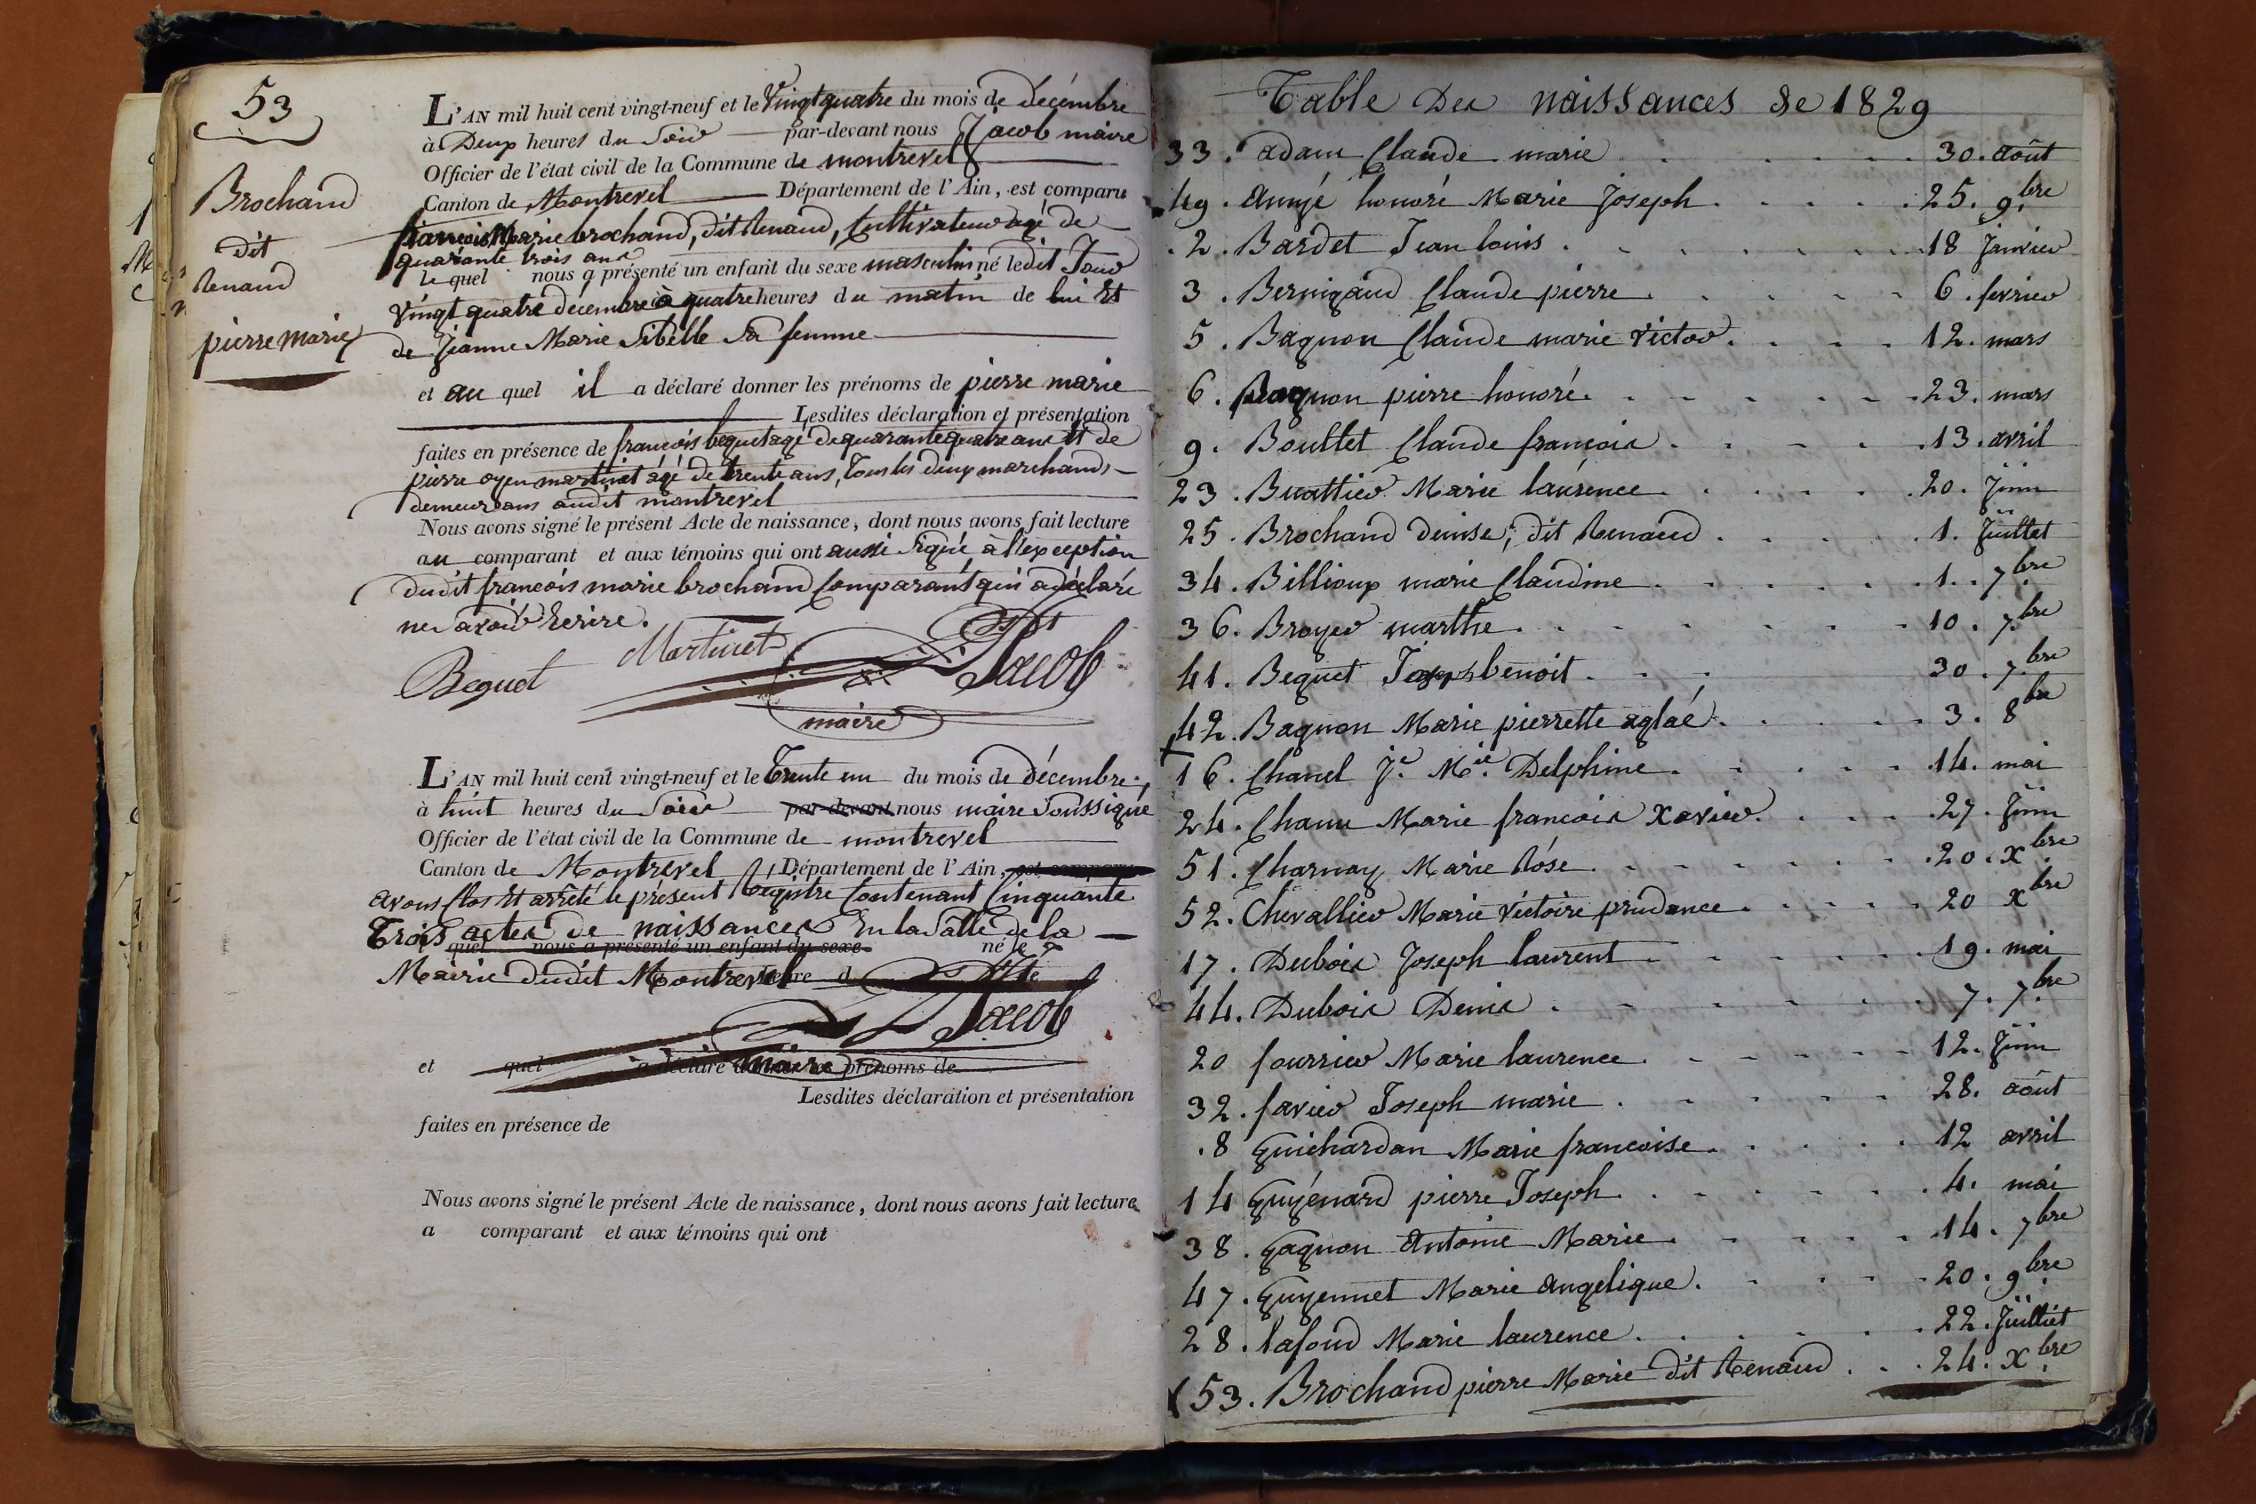 53
Brochand
dit
Renaud
pierre marie
L'AN mil huit cent vingt-neuf et le Vingt quatre du mois de décembre
à Deux heures du Soir par-devant nous Jacob maire
Officier de l'état civil de la Commune de montrevel
Canton de Montrevel Département de l'Ain, est comparu
françois Marie brochand, dit Renaud, Cultivateur agé de
quarante trois ans
le quel nous a présenté un enfant du sexe masculin né ledit Jour
vingt quatre decembre à quatre heures du matin de lui Et
de Jeanne Marie Sibelle Sa femme
et au quel il a déclaré donner les prénoms de pierre marie
Lesdites déclaration et présentation
faites en présence de françois bequet agé de quarante quatre ans Et de
pierre oyen martinet agé de trente ans, tous les deux marchands
demeurans audit montrevel
Nous avons signé le présent Acte de naissance, dont nous avons fait lecture
au comparant et aux témoins qui ont aussi Signé à l'exception
dudit francois marie brochand Comparant qui a déclaré
ne Savoir Ecrire.
Bequet Martinet Jacob
maire
L'AN mil huit cent vingt-neuf et le Trente un du mois de décembre
à huit heures du Soir par-devant nous maire Soussigné
Officier de l'état civil de la Commune de montrevel
Canton de Montrevel Département de l'Ain, est comparu
avons Clos Et arrêté le présent Registre Contenant Cinquante
Trois actes de naissances En la Salle de la
quel nous a présenté un enfant du sexe né le
Mairie dudit Montrevel heure d
Jacob
maire
et quel a déclaré donner les prénoms de
Lesdites déclaration et présentation
faites en présence de
Nous avons signé le présent Acte de naissance, dont nous avons fait lecture
a comparant et aux témoins qui ont
Table Des naissances de 1829
33. adam Claude marie 30. août
49. Annjé honoré Marie Joseph 25. 9bre
2. Bardet Jean louis 18 Janvier
3. Bernigaud Claude pierre 6. fevrier
5. Bagnon Claude marie Victor 12. mars
6. Bagnon pierre honoré 23. mars
9. Boullet Claude francois 13. avril
23. Buattier Marie laurence 20. Juin
25. Brochand Denise, dit Renaud 1. Juillet
34. Billioux marie Claudine 1. 7bre
36. Broyer marthe 10. 7bre
41. Bequet benoit 30. 7bre
42. Bagnon Marie pierrette aglaé 3. 8bre
16. Chanel Je. Mie. Delphine 14. mai
24. Chanu Marie francois Xavier 27. Juin
51. Charnay Marie Rose 20. Xbre
52. Chevallier Marie Victoire prudance 20 Xbre
17. Dubois Joseph laurent 19. mai
44. Dubois Denis 7. 7bre
20 fourrier Marie laurence 12. Juin
32. favier Joseph marie 28. août
8 Guichardan Marie francoise 12 avril
14 Guyénard pierre Joseph 4. mai
38. Gagnon Antoine Marie 14. 7bre
47. Guyennet Marie Angelique 20. 9bre
28. lafond Marie laurence 22. Juillet
53. Brochand pierre Marie dit Renaud 24. Xbre